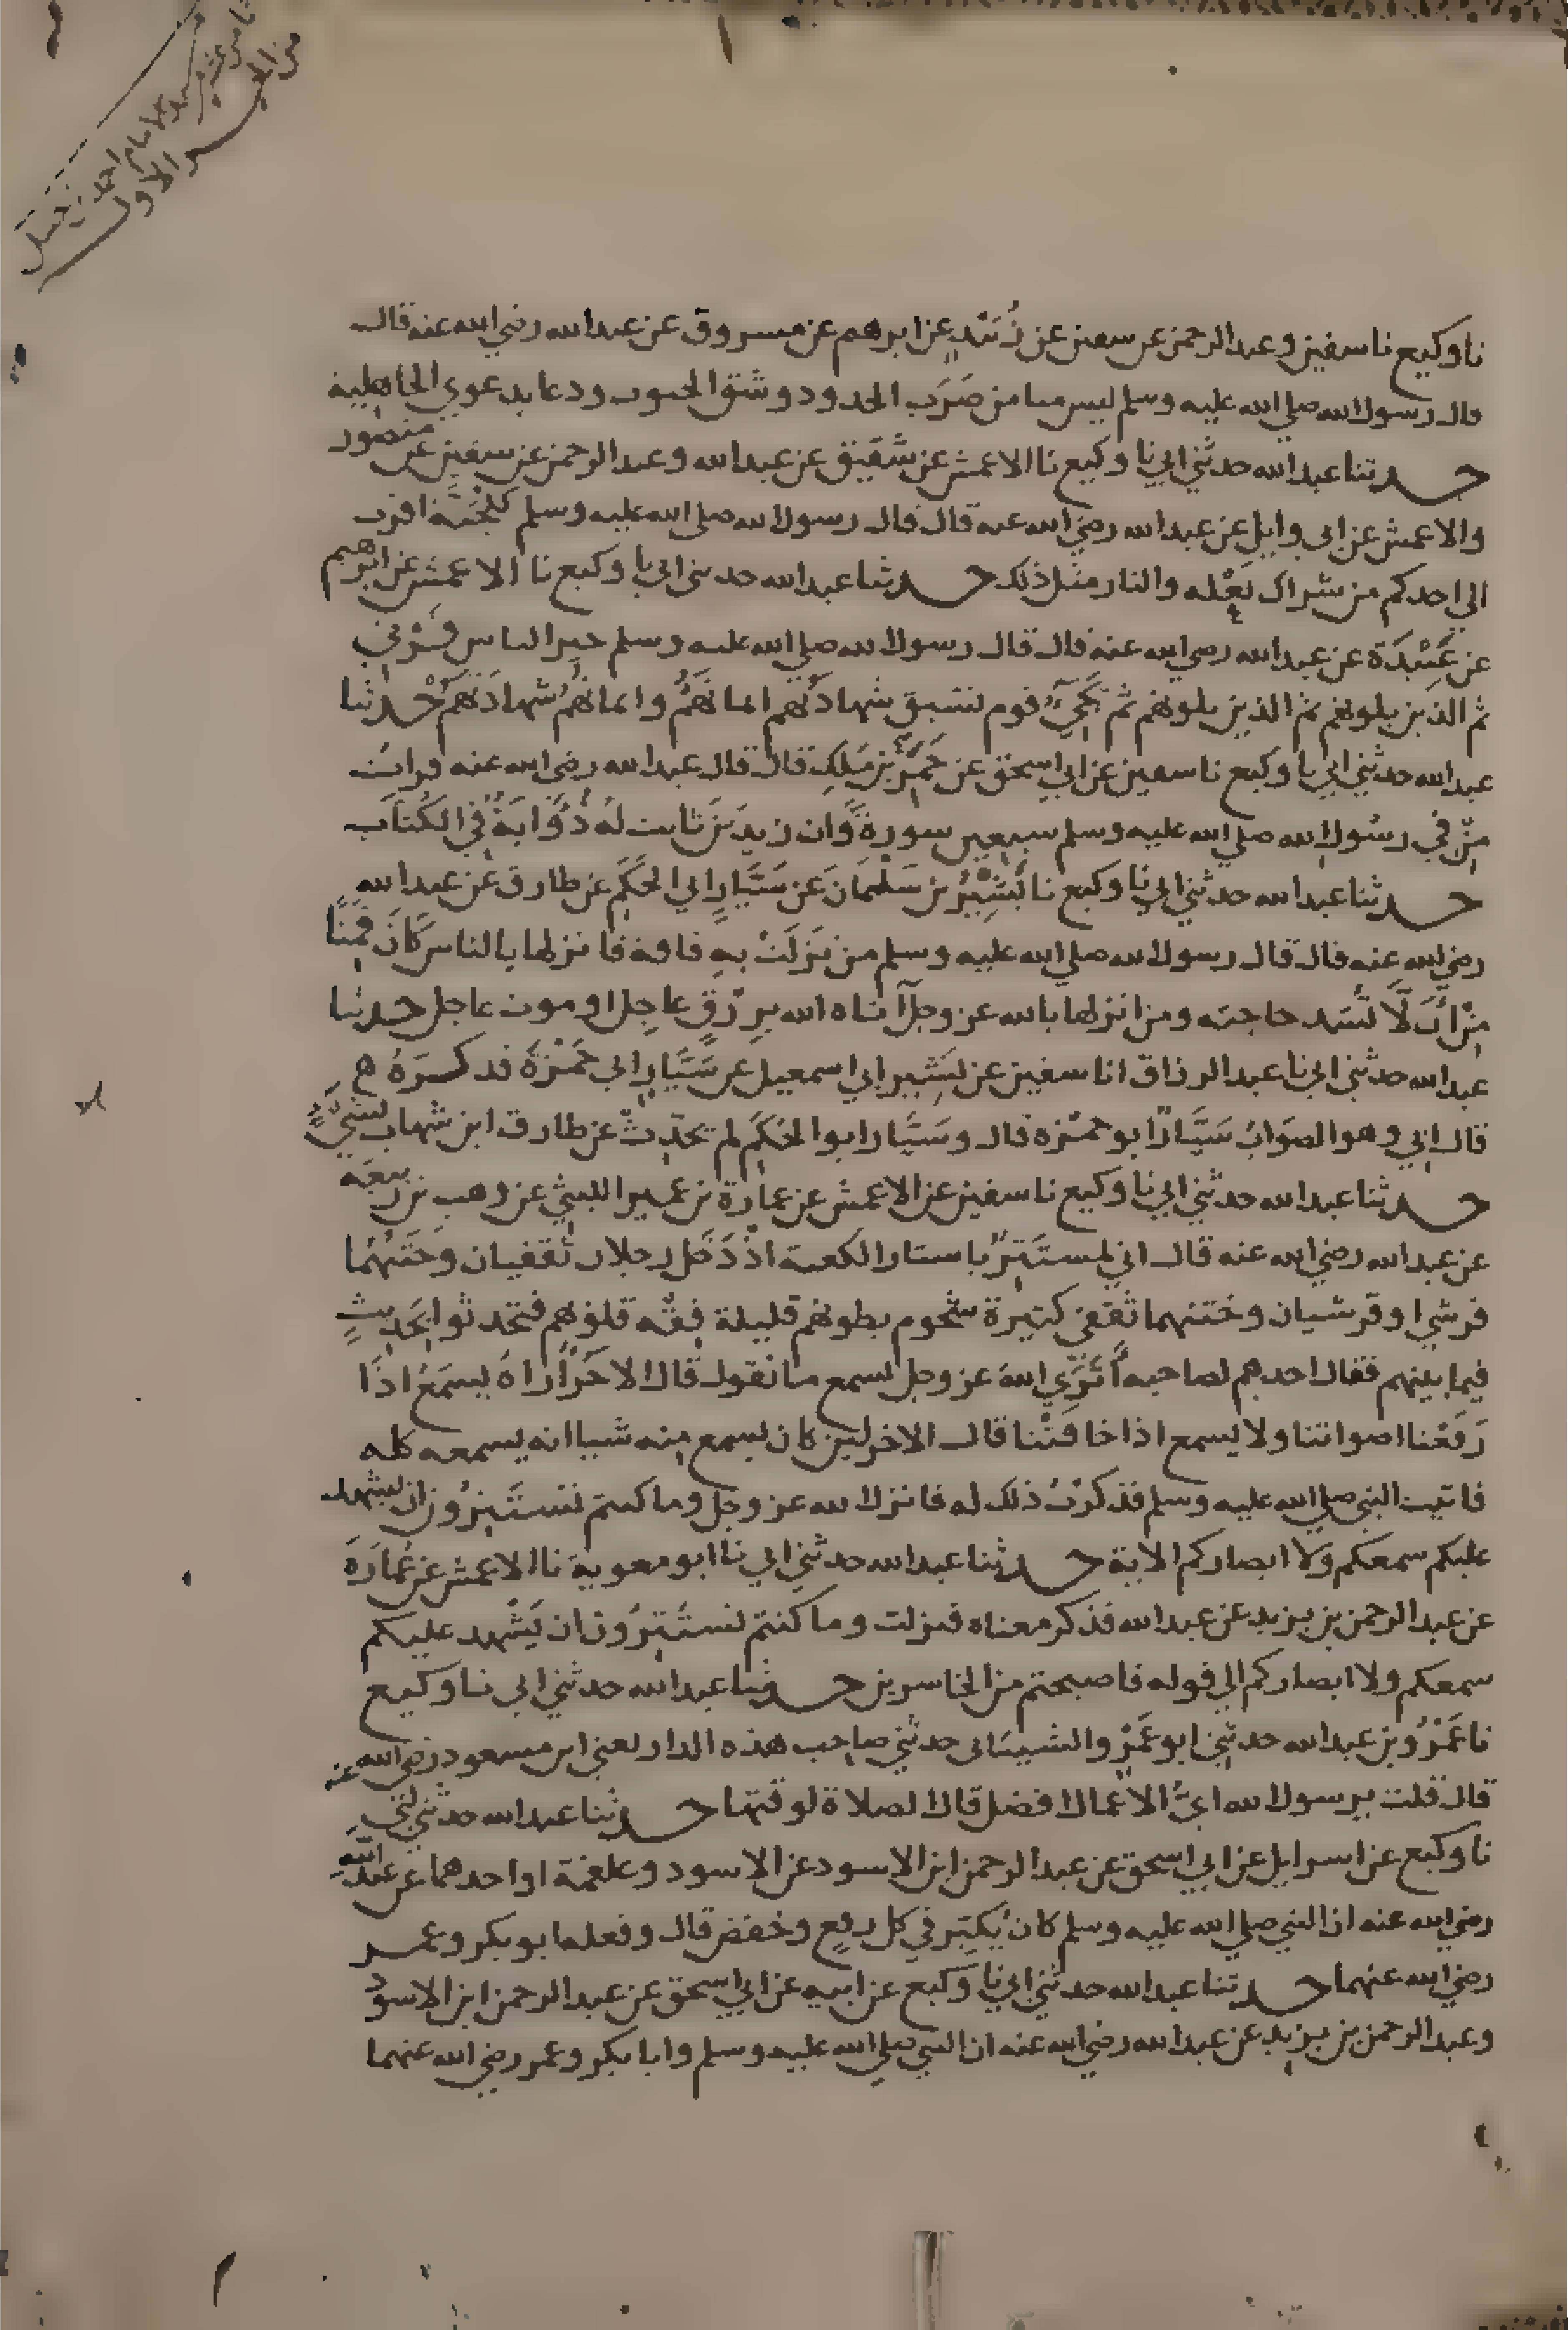 من مسند الامام احمد بن حنبل
الاول
نا وكيع نا سفين وعبد الرحمن عن سفين عن زُبَيْد عن ابرهيم عن مسروق عن عبد الله رضي الله عنه قال
قال رسول الله صلي الله عليه وسلم ليس منا من ضَرَب الخدود وشق الجيوب ودعا بدعوي الجاهلية
حدثنا عبد الله حدثني ابي نا وكيع نا الاعمش عن شَقيق عن عبد الله وعبد الرحمن عن سفين عن منصور
والاعمش عن ابي وايل عن عبد الله رضي الله عنه قال قال رسول الله صلي الله عليه وسلم للجَنّة اقرب
الي احدكم من شراك نَعْله والنار مثل ذلك حدثنا عبد الله حدثني ابي نا وكيع نا الاعمش عن ابرهيم
عن عَبِيْدَة عن عبد الله رضي الله عنه قال قال رسول الله صلي الله عليه وسلم خير الناس قَرْني
ثم الذين يلونهم ثم الذين يلونهم ثم يَجِيءُ قوم تسبق شهادَتُهم ايمانَهُمْ وايمانُهُمْ شهادَتَهُمْ حدثنا
عبد الله حدثني ابي نا وكيع نا سفين عن ابي اسحق عن خُمَيْر بن مَلِك قال قال عبد الله رضي الله عنه قرات
مِنْ في رسُول الله صلي الله عليه وسلم سبعين سورةً وان زيدَ بنَ ثابت لَهُ ذُؤَابَةٌ في الكُتّاب
حدثنا عبد الله حدثني ابي نا وكيع نا بَشِيْرُ بن سَلْمَانَ عن سَيَّارٍ ابي الحَكَمِ عن طارق عن عبد الله
رضي الله عنه قال قال رسول الله صلي الله عليه وسلم من نَزَلَتْ بهِ فاقة فانزلها بالناس كَانَ قَمِنًا
مِنْ أنَ لّا تُسَد حاجته ومن انزلها بالله عز وجلّ آتاه الله بِرِزْقٍ عاجِلٍ او موت عاجل حدثنا
عبد الله حدثني ابي نا عبد الرزاق انا سفين عن بَشِير ابي اسمعيل عن سَيَّارٍ ابي حَمْزَةَ فذكَرَهُ
قال ابي وهو الصوَابُ سَيَّارٌ ابو حمْزه قال وسَيَّار ابو الحَكَم لم يحَدِّثْ عن طارق ابن شهاب بشيْءٍ
حدثنا عبد الله حدثني ابي نا وكيع نا سفين عن الاعمش عن عمارة بن عمير الليثي عن وهب بن ربيعَه
عن عبد الله رضي الله عنه قال اني لمستَتِرٌ باستار الكعبة اذْ دَخَل رجلان ثقفيان وخَتَنُهُما
قرشي او قرشيان وختنهما ثقفي كثيرة شحوم بطونهم قليلة فِقْه قلوبهم فتحدثوا بحَدِيثٍ
فيما بينهم فقال احدهم لصاحبه أتُرَي اللهَ عز وجل يسمع ما نقول قال الاخَر أُراهُ يسمَعُ اذَا
رَفَعْنا اصواتنا ولا يسمع اذا خافتْنا قال الاخر لين كان يسمع منه شيا انه يسمعه كله
فاتيت النبي صلي الله عليه وسلم فذكرْتُ ذلك له فانزل الله عز وجل وما كنتم تستَتِرُون ان يشهد
عليكم سمعكم وَلا ابصاركم الاية حدثنا عبد الله حدثني ابي نا ابو معوية نا الاعمش عن عُمارَةَ
عن عبد الرحمن بن يزيد عن عبد الله فذكر معناه فنزلت وما كنتم تستَتِرُون ان يَشْهد عليكم
سمعكم ولا ابصاركم الي قوله فاصبحتم من الخاسرين حدثنا عبد الله حدثني ابي نا وكيع
نا عَمْرُو بن عبد الله حدثني ابو عَمْرٍو الشيباني حدثني صاحب هذه الدار يعني ابن مسعود رضي الله عنه
قال قلت يرسول الله ايُّ الاعمال افضل قال الصلاة لوقتها حدثنا عبد الله حدثني ابي
نا وكيع عن اسرايل عن ابي اسحق عن عبد الرحمن ابن الاسود عن الاسود وعلقمة او احدهما عن عبد الله
رضي الله عنه ان النبي صلي الله عليه وسلم كان يُكبّر في كل رفعٍ وخفض قال وفعله ابو بكر وعمر
رضي الله عنهما حدثنا عبد الله حدثني ابي نا وكيع عن ابيه عن ابي اسحق عن عبد الرحمن ابن الاسود
وعبد الرحمن بن يزيد عن عبد الله رضي الله عنه ان النبي صلي الله عليه وسلم وابا بكر وعمر رضي الله عنهما